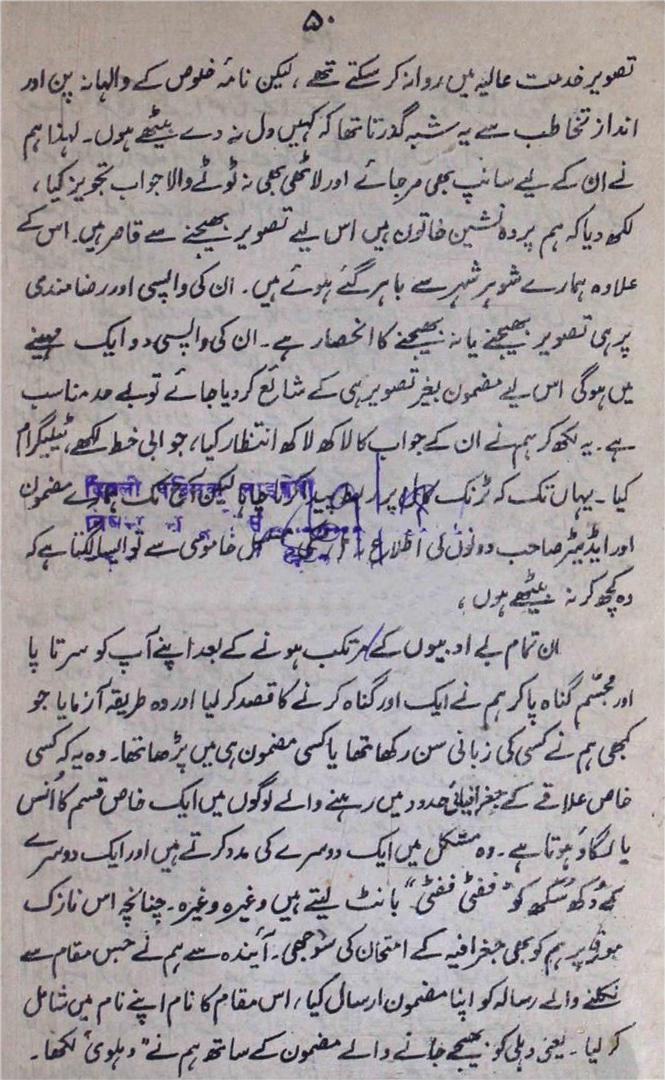 ۵۰
تصویر خدمت عالیہ میں روانہ کر سکتے تھے، لیکن نامۂ خلوص کے والہانہ پن اور
انداز تخاطب سے یہ شبہ گذرتا تھا کہ کہیں دل نہ دے بیٹھے ہوں۔ لہٰذا ہم
نے ان کے لیے سانپ بھی مر جائے اور لاٹھی بھی نہ ٹوٹے والا جواب تجویز کیا،
لکھ دیا کہ ہم پردہ نشین خاتون ہیں اس لیے تصویر بھیجنے سے قاصر ہیں۔ اس کے
علاوہ ہمارے شوہر شہر سے باہر گئے ہوئے ہیں۔ ان کی واپسی اور رضا مندی
پر ہی تصویر بھیجنے یا نہ بھیجنے کا انحصار ہے۔ ان کی واپسی دو ایک مہینے
میں ہوگی اس لیے مضمون بغیر تصویر ہی کے شائع کر دیا جائے تو بے حد مناسب
ہے۔ یہ لکھ کر ہم نے ان کے جواب کا لاکھ لاکھ انتظار کیا، جوابی خط لکھے، ٹیلیگرام
کیا۔ یہاں تک کہ ٹرنک کال پر رابطہ پیدا کرنا چاہا لیکن آج تک ہمارے مضمون
اور ایڈیٹر صاحب دونوں کی اطلاع خاموشی سے تو ایسا لگتا ہے کہ
وہ کچھ کر نہ بیٹھے ہوں،
ان تمام بے ادبیوں کے مرتکب ہونے کے بعد اپنے آپ کو سر تا پا
اور مجسّم گناہ پا کر ہم نے ایک اور گناہ کرنے کا قصد کر لیا اور وہ طریقہ آزمایا جو
کبھی ہم نے کسی کی زبانی سن رکھا تھا یا کسی مضمون ہی میں پڑھا تھا۔ وہ یہ کہ کسی
خاص علاقے کے جغرافیائی حدود میں رہنے والے لوگوں میں ایک خاص قسم کا اُنس
یا لگاؤ ہوتا ہے۔ وہ مشکل میں ایک دوسرے کی مدد کرتے ہیں اور ایک دوسرے
کے دُکھ سُکھ کو "ففٹی ففٹی" بانٹ لیتے ہیں وغیرہ وغیرہ۔ چنانچہ اس نازک
موقع پر ہم کو بھی جغرافیہ کے امتحان کی سُوجھی۔ آیندہ سے ہم نے جس مقام سے
نکلنے والے رسالہ کو اپنا مضمون ارسال کیا، اس مقام کا نام اپنے نام میں شامل
کر لیا۔ یعنی دہلی کو بھیجے جانے والے مضمون کے ساتھ ہم نے "دہلوی" لکھا۔